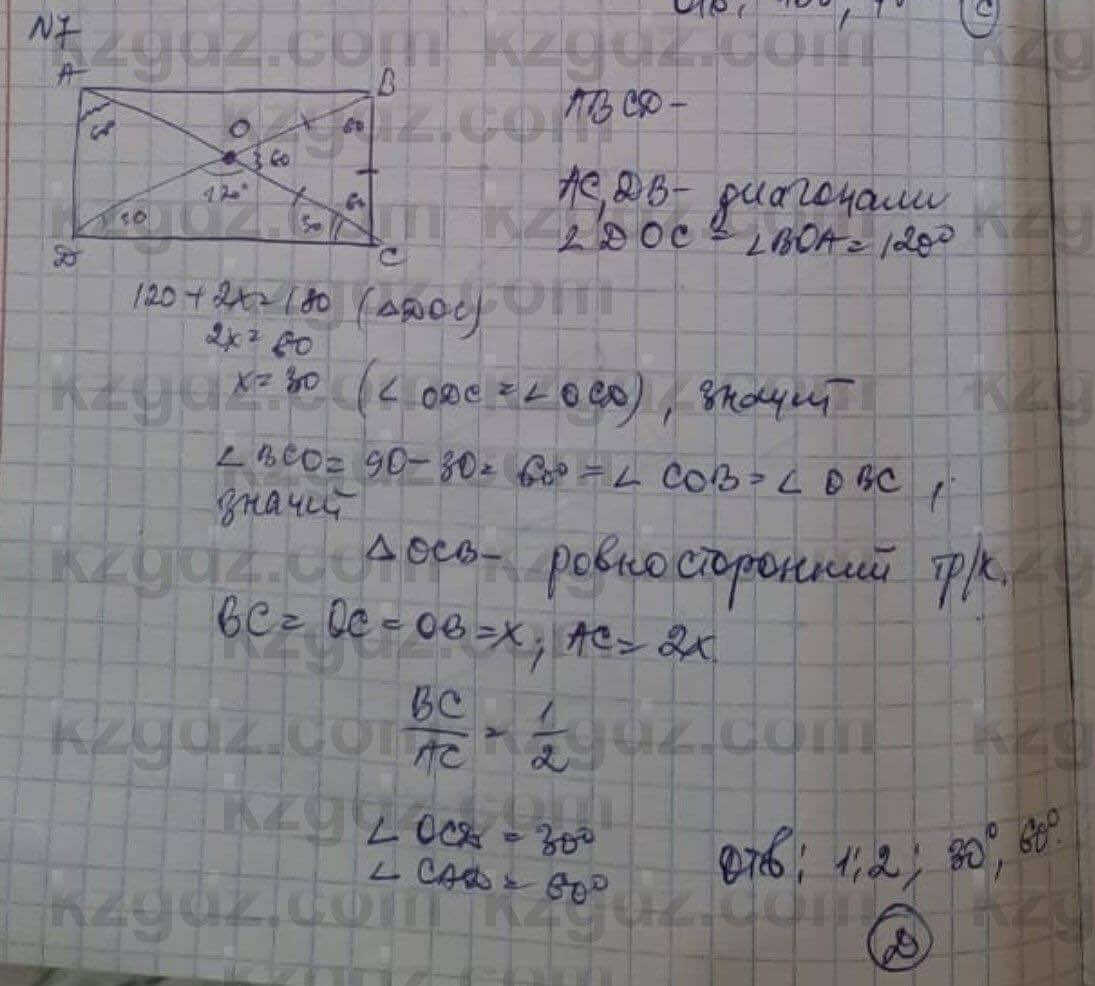 N7
A
B
60
O
60
60
120°
60
30
30
D
C
ABCD -
AC, DB - диагонали
∠DOC = ∠BOA = 120°
120 + 2x = 180 (△DOC)
2x = 60
x = 30 (∠ODC = ∠OCD), значит
∠BCO = 90 - 30 = 60° = ∠COB = ∠OBC,
значит
△OCB - ровносторонний тр/к.
BC = OC = OB = x; AC = 2x
BC/AC = 1/2
∠OCD = 30°
∠CAD = 60°
Отв: 1:2; 30°, 60°.
D
kzgdz.com